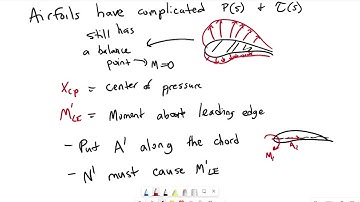 Airfoils have complicated P(s) + τ(s)
still has
a balance
point → M=0
Xcp = center of pressure
M'LE = Moment about leading edge
- Put A' along the chord
- N' must cause M'LE